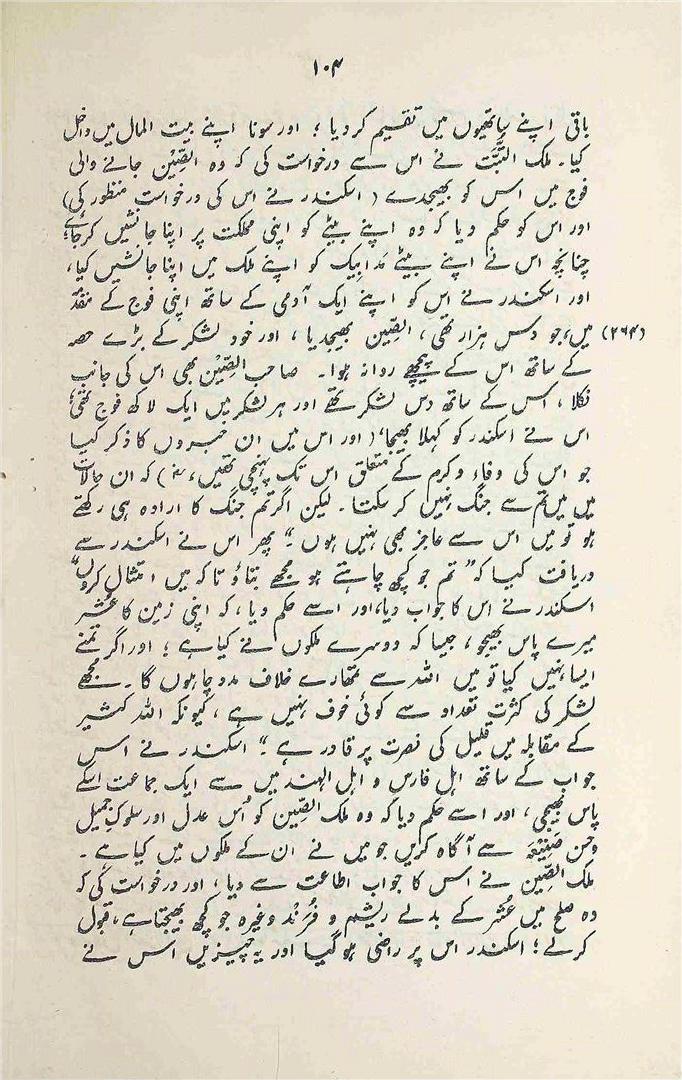 ۱۰۴
باقی اپنے ساتھیوں میں تقسیم کر دیا ؛ اور سونا اپنے بیت المال میں داخل
کیا ۔ ملک التُّبَّت نے اس سے درخواست کی کہ وہ الصِّیْن جانے والی
فوج میں اس کو بھیجدے ( اسکندر نے اس کی درخواست منظور کی)
اور اس کو حکم دیا کہ وہ اپنے بیٹے کو اپنی مملکت پر اپنا جانشیں کر جائے؛
چنانچہ اس نے اپنے بیٹے مَدابیک کو اپنے ملک میں اپنا جانشیں کیا،
اور اسکندر نے اس کو اپنے ایک آدمی کے ساتھ اپنی فوج کے مقدّمہ
(۲۶۴) میں، جو دس ہزار تھی ، الصِّین بھیجدیا ، اور خود لشکر کے بڑے حصہ
کے ساتھ اس کے پیچھے روانہ ہوا۔ صاحب الصِّیْن بھی اس کی جانب
نکلا ، اس کے ساتھ دس لشکر تھے اور ہر لشکر میں ایک لاکھ فوج تھی؛
اس نے اسکندر کو کہلا بھیجا، ( اور اس میں ان خبروں کا ذکر کیا
جو اس کی وفاء و کرم کے متعلق اس تک پہنچی تھیں، ) کہ ان حالات
میں میں تم سے جنگ نہیں کر سکتا ۔ لیکن اگر تم جنگ کا ارادہ ہی رکھتے
ہو تو میں اس سے عاجز بھی نہیں ہوں ۔“ پھر اس نے اسکندر سے
دریافت کیا کہ ”تم جو کچھ چاہتے ہو مجھے بتاؤ تا کہ میں امتثال کروں“
اسکندر نے اس کا جواب دیا، اور اسے حکم دیا ، کہ اپنی زمین کا عُشر
میرے پاس بھیجو ، جیسا کہ دوسرے ملکوں نے کیا ہے ؛ اور اگر تمنے
ایسا نہیں کیا تو میں اللہ سے تمھارے خلاف مدد چاہوں گا ۔ مجھے
لشکر کی کثرت تعداد سے کوئی خوف نہیں ہے ، کیونکہ اللہ کثیر
کے مقابلہ میں قلیل کی نصرت پر قادر ہے ۔“ اسکندر نے اس
جواب کے ساتھ اہل فارس و اہل الہند میں سے ایک جماعت اسکے
پاس بھیجی ، اور اسے حکم دیا کہ وہ ملک الصِّین کو اُس عدل اور سلوک جمیل
وحسن صَنِیْعَہ سے آگاہ کریں جو میں نے ان کے ملکوں میں کیا ہے ۔
ملک الصِّین نے اس کا جواب اطاعت سے دیا ، اور درخواست کی کہ
وہ صلح میں عُشر کے بدلے ریشم و فُرُنْد وغیرہ جو کچھ بھیجتا ہے، قبول
کر لے ؛ اسکندر اس پر راضی ہو گیا اور یہ چیزیں اس نے